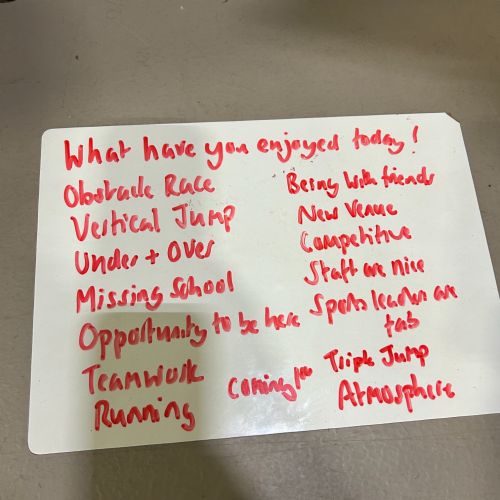 What have you enjoyed today!
Obstacle Race
Vertical Jump
Under + Over
Missing School
Opportunity to be here
Teamwork
Running
Coming
Being with friends
New Venue
Competitive
Staff are nice
Sports leaders are
fab
Triple Jump
Atmosphere